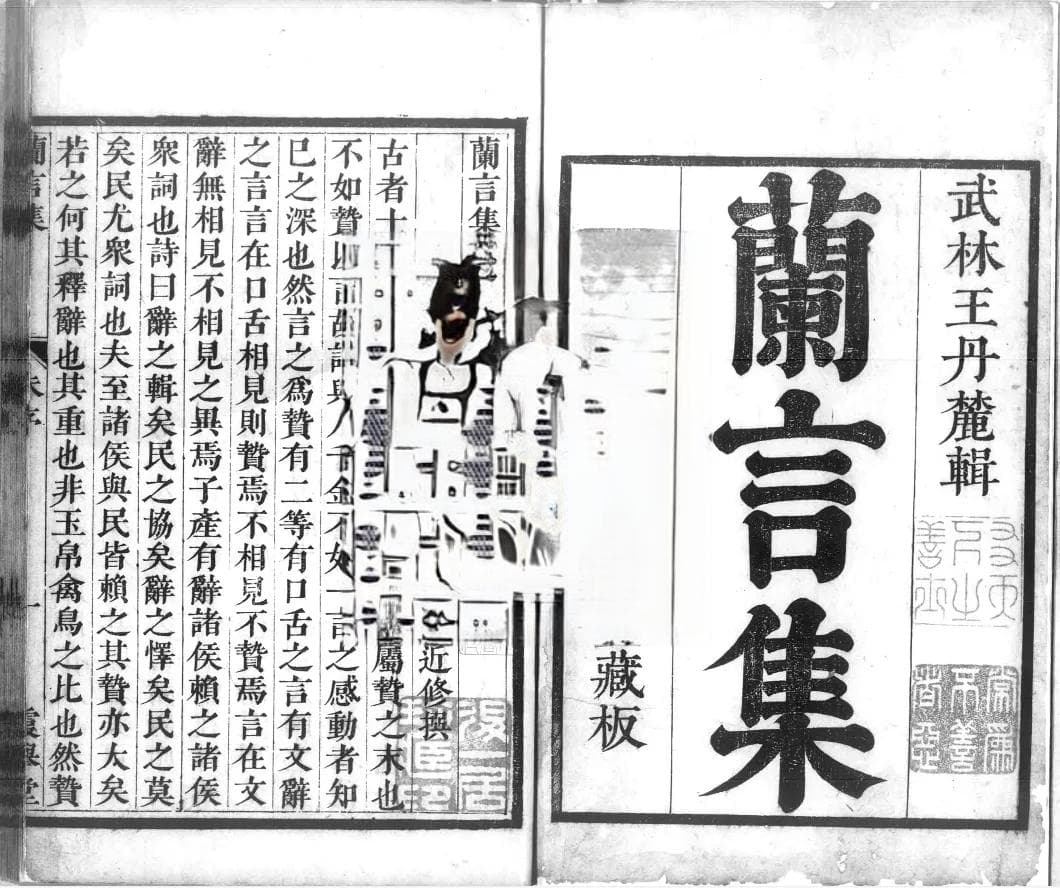 武林王丹麓輯
蘭言集
藏板
蘭言集
近修撰
古者十
屬贄之末也
不如贄以言
金不如一言之感動者知
已之深也然言之爲贄有二等有口舌之言有文辭
之言言在口舌相見則贄焉不相見不贄焉言在文
辭無相見不相見之異焉子產有辭諸侯賴之諸侯
衆詞也詩曰辭之輯矣民之協矣辭之懌矣民之莫
矣民尤衆詞也夫至諸侯與民皆賴之其贄亦大矣
若之何其釋辭也其重也非玉帛禽鳥之比也然贄
蘭言集
一
霞舉堂